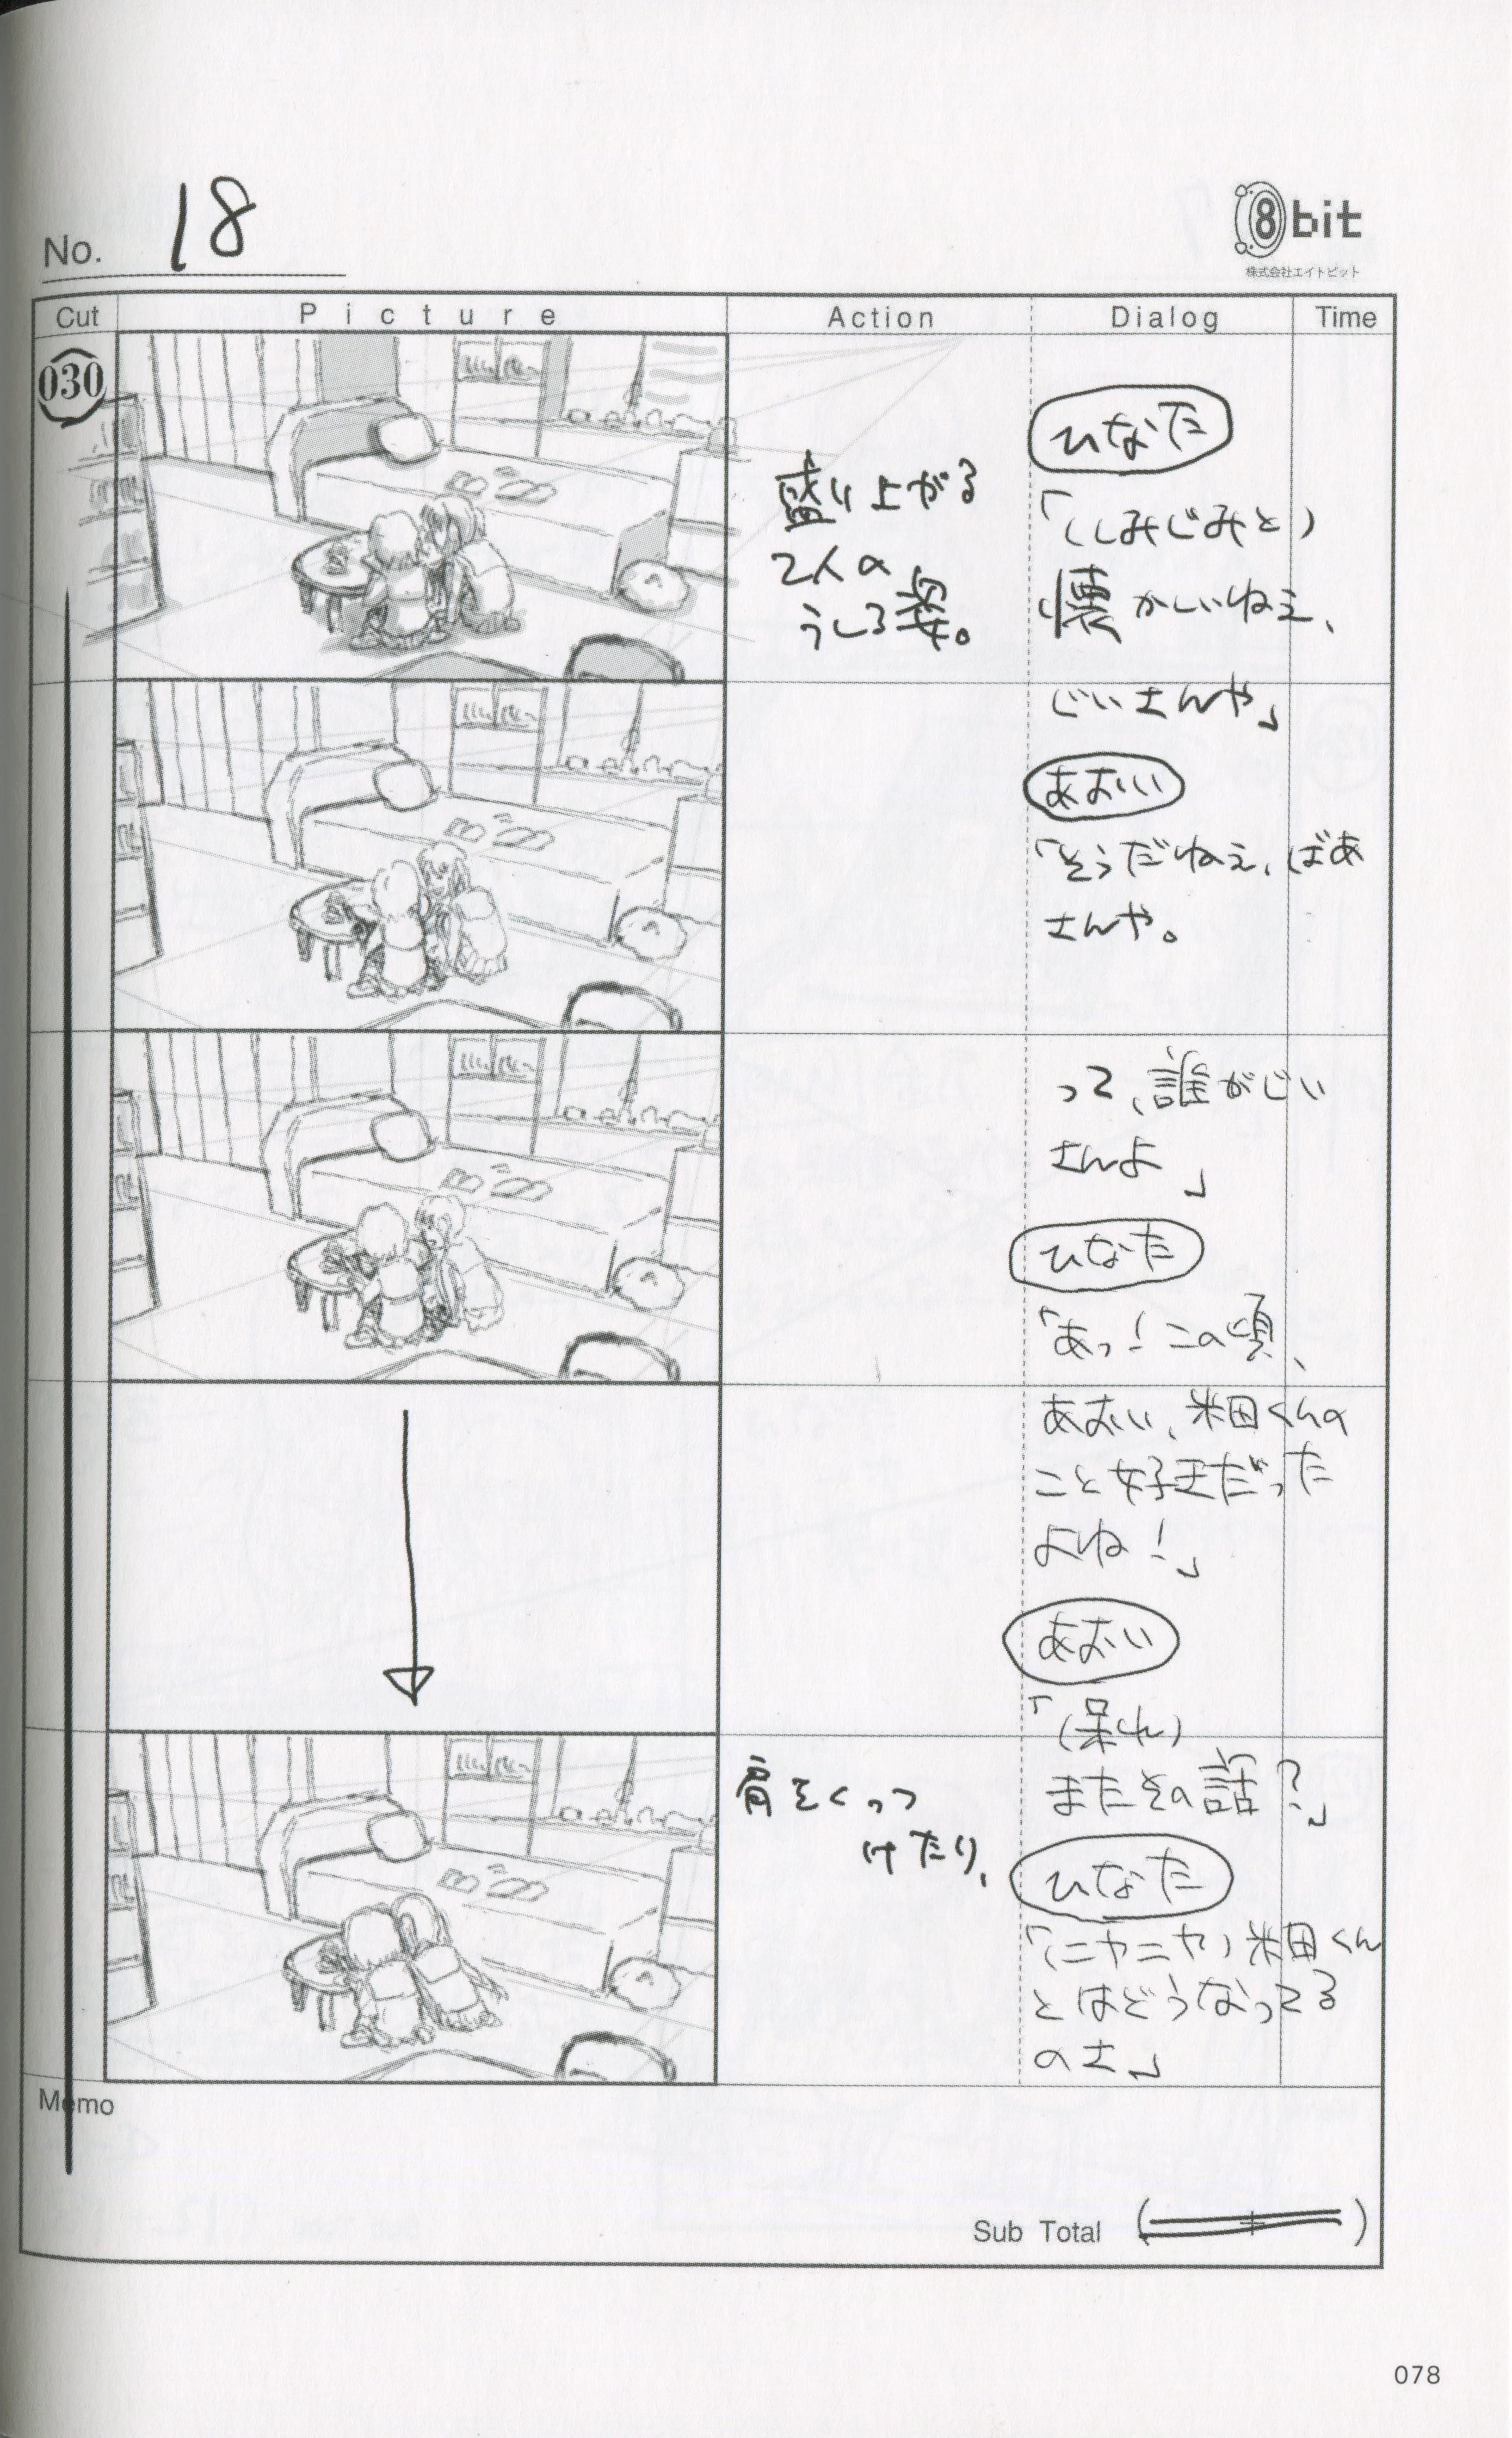 No. 18
8bit
株式会社エイトビット
Cut
Picture
Action
Dialog
Time
030
盛り上がる
2人の
うしろ姿。
ひなた
「(しみじみと)
懐かしいねぇ、
じいさんや」
あおい
「そうだねぇ、ばあ
さんや。
って、誰がじい
さんよ」
ひなた
「あっ!この頃、
あおい、米田くんの
こと好きだった
よね!」
あおい
「(呆れ)
またその話?」
肩をくっつ
けたり、
ひなた
「(ニヤニヤ)米田くん
とはどうなってる
のさ」
Memo
Sub Total ( + )
078